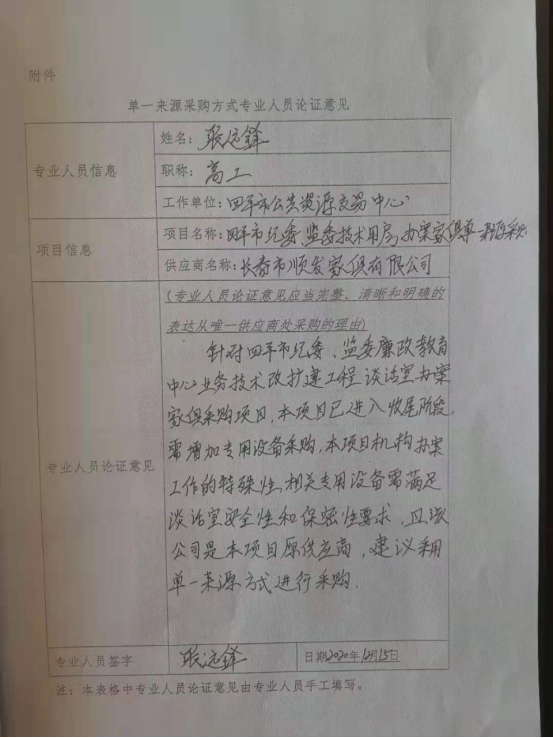 附件
单一来源采购方式专业人员论证意见
专业人员信息
姓名：张远锋
职称：高工
工作单位：四平市公共资源交易中心
项目信息
项目名称：四平市纪委监委技术用房,办案家俱单一来源采购
供应商名称：长春市顺发家俱有限公司
专业人员论证意见
(专业人员论证意见应当完整、清晰和明确的
表达从唯一供应商处采购的理由)
针对四平市纪委、监委廉政教育
中心业务技术改扩建工程谈话室办案
家俱采购项目,本项目已进入收尾阶段,
需增加专用设备采购,本项目机构办案
工作的特殊性,相关专用设备需满足
谈话室安全性和保密性要求,且该
公司是本项目原供应商,建议采用
单一来源方式进行采购.
专业人员签字
张远锋
日期2020年12月15日
注：本表格中专业人员论证意见由专业人员手工填写。